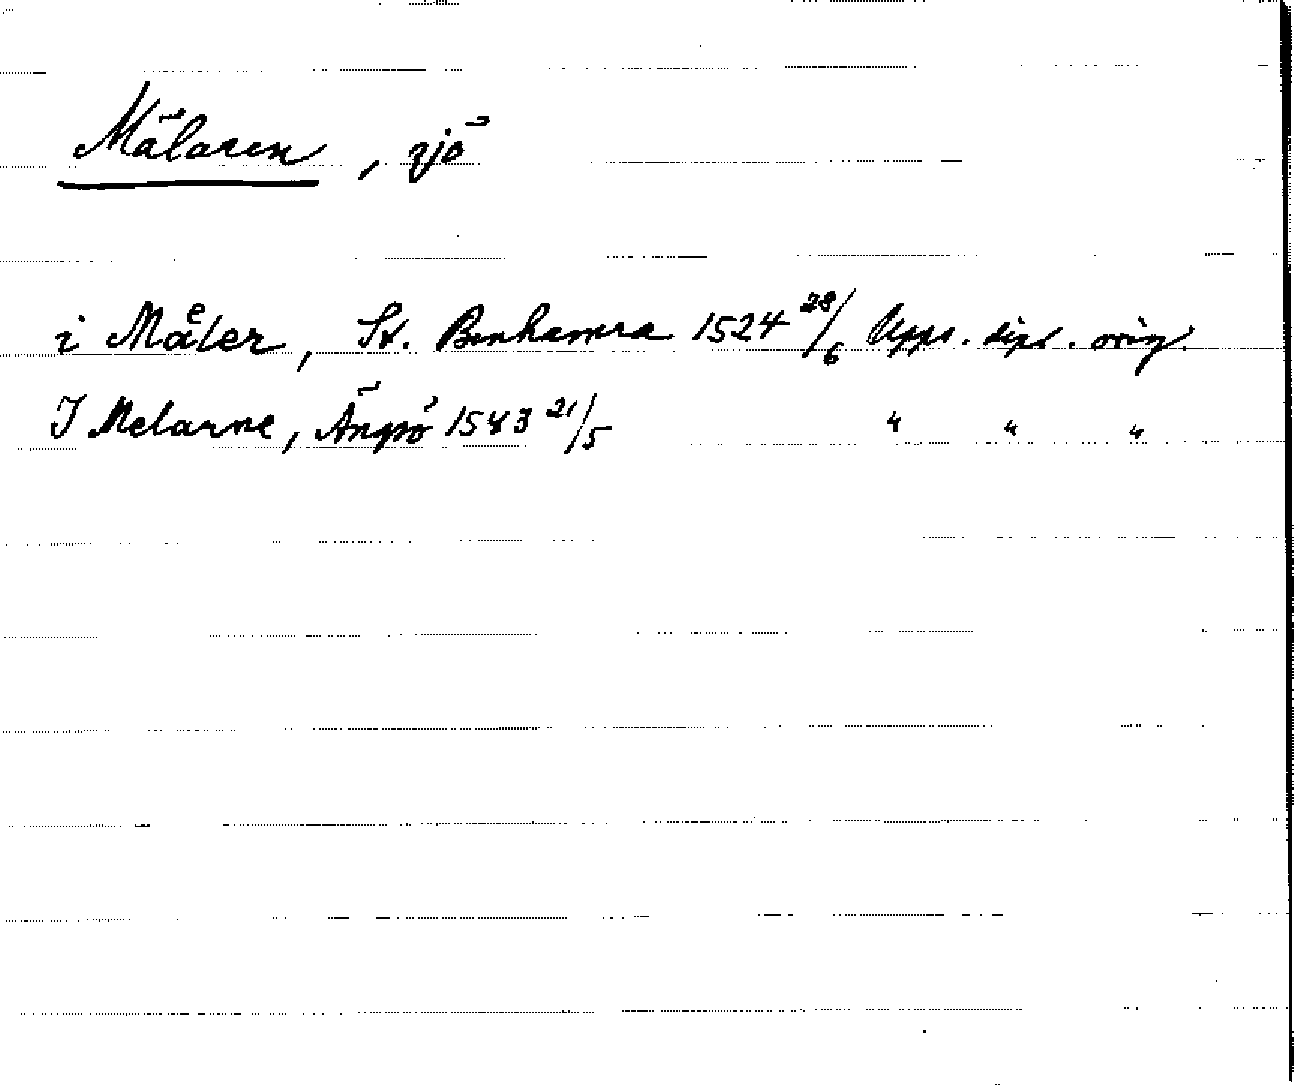 Mälaren, sjö
i Maͤler, St. Benhamra 1524 28/6 Upps. dipl. orig.
I Melarne, Ängsö 1543 21/5 " " "